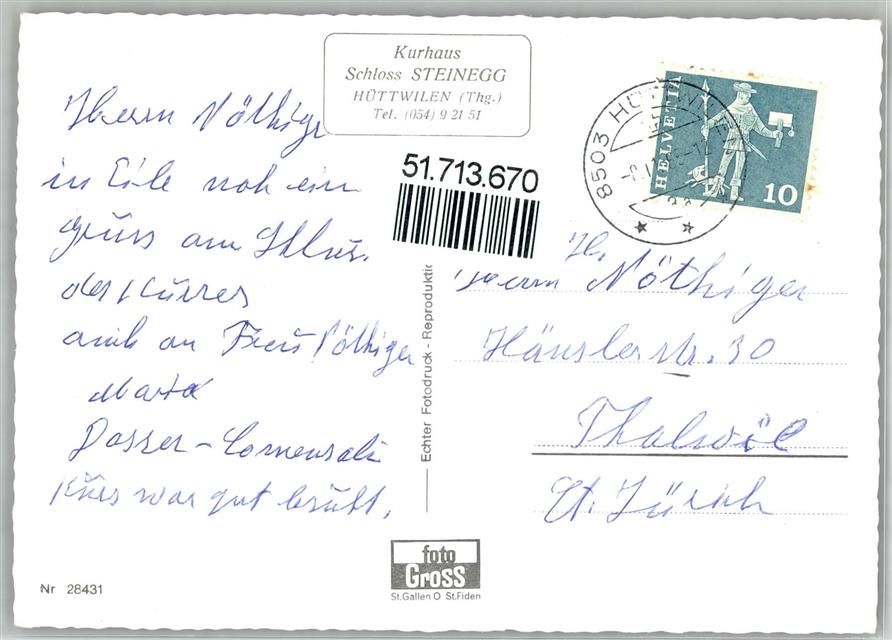 Kurhaus
Schloss STEINEGG
HÜTTWILEN (Thg.)
Tel. (054) 9 21 51
Herrn Nöthiger
in Eile noh ein
gruss am Shluss
des Kurses
auch an Freu Nöthiger
Maria
Dosser - Comensoli
Kurs war gut besuht,
Nr 28431
51.713.670
Echter Fotodruck - Reproduktion
foto
Gross
St.Gallen O St.Fiden
8503 HÜTTW
HELVETIA
10
Herrn Nöthiger
Häuslerstr. 30
Thalwil
Ct. Zürich